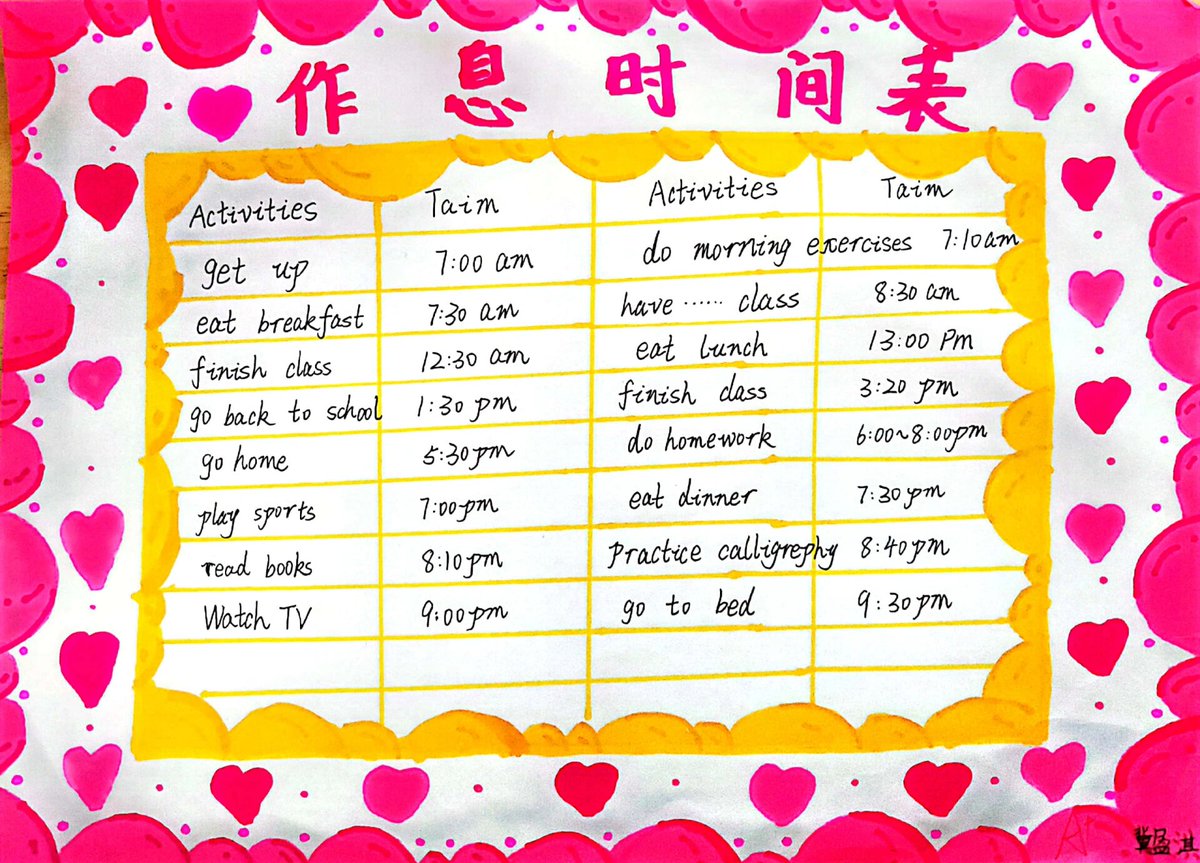 作息时间表
Activities Taim Activities Taim
get up 7:00 am do morning exercises 7:10am
eat breakfast 7:30 am have ...... class 8:30 am
finish class 12:30 am eat lunch 13:00 Pm
go back to school 1:30 pm finish class 3:20 pm
go home 5:30pm do homework 6:00~8:00pm
play sports 7:00pm eat dinner 7:30pm
read books 8:10pm Practice calligrephy 8:40pm
Watch TV 9:00pm go to bed 9:30pm
A+